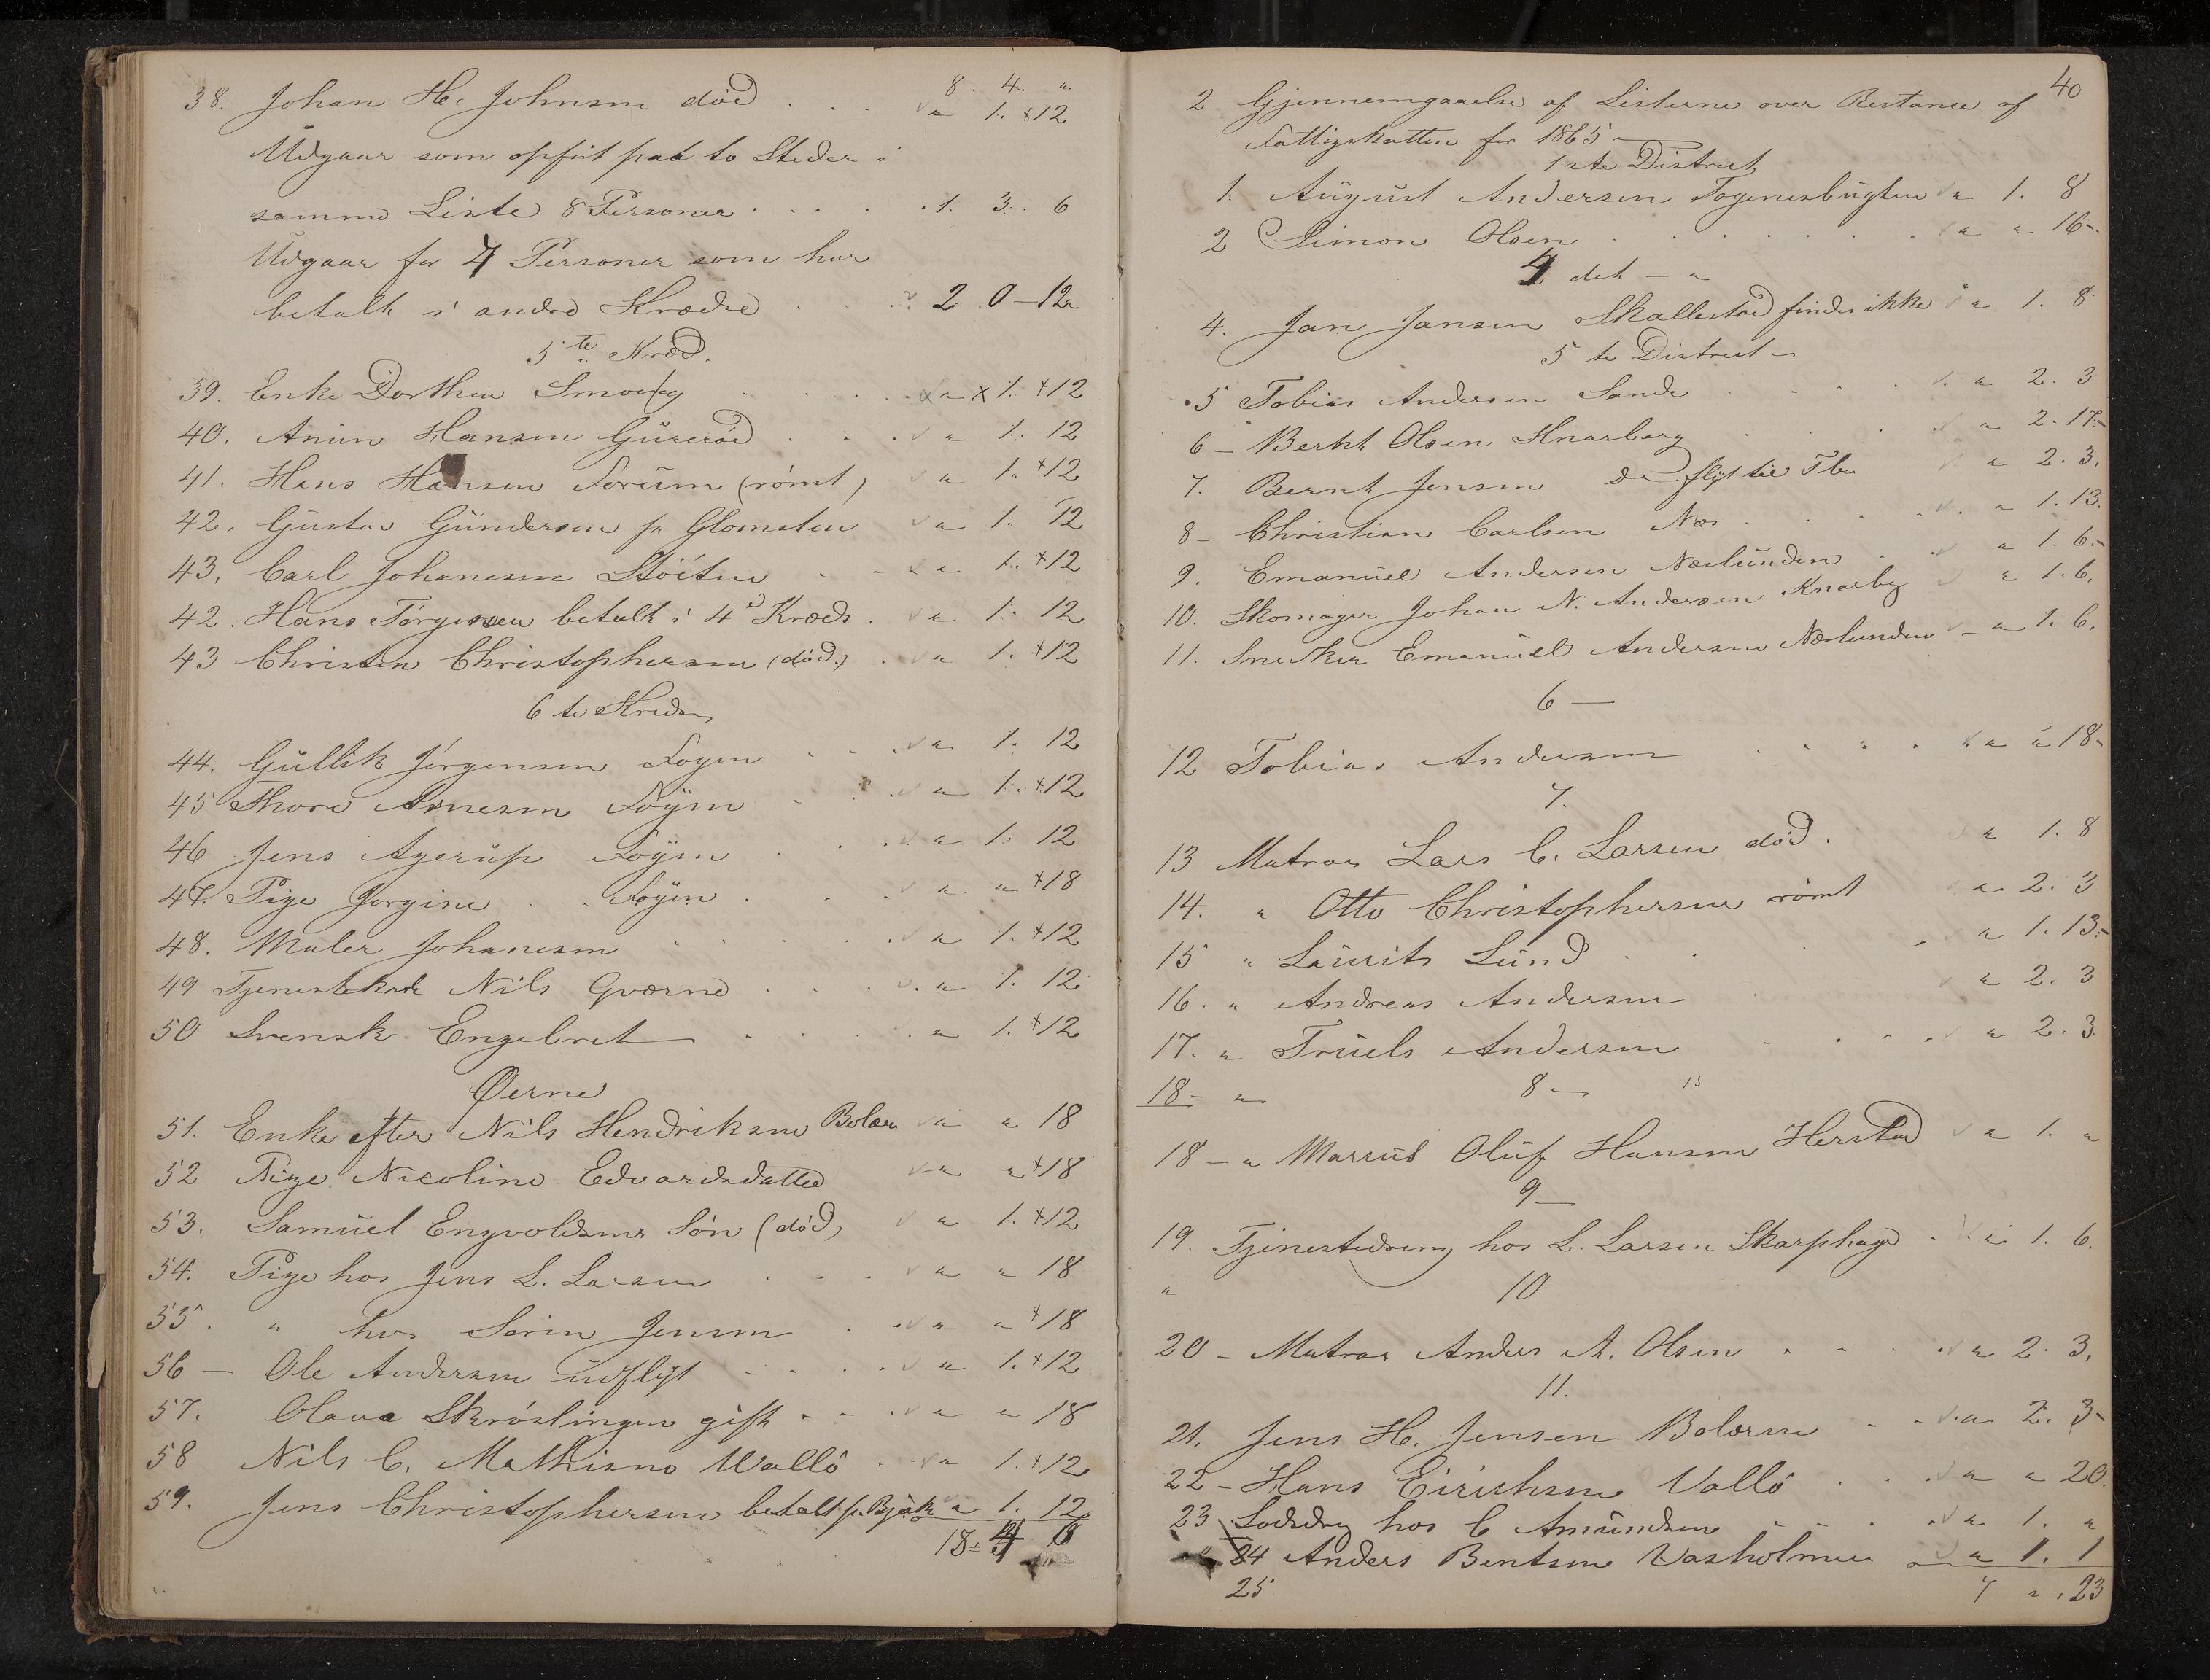 8. 4. "
38. Johan H. Johnsen død . . . " 1. +12
Udgaar som opført paa to Steder i
samme Liste 8 Personer . . . . . 1. 3. 6
Udgaar for 4 Personer som har
betalt i andre Kredse . . . 2. 0 — 12
5te Kred.
39. Enke Dorthea . . . " x 1. +12
40. Hansen . . . " 1. 12
41. Hans Hansen (rømt) " 1. +12
42. Gustav Gundersen " 1. 12
43. Carl Johanesen . . " 1. +12
42. Hans Jørgensen betalt i 4d Kreds . " 1. 12
43 Christen Christophersen (død.) . " 1. +12
6te Kreds
44. Gullik Jørgensen . . . " 1. 12
45 Thore Arnesen Føyen . . . " 1. +12
46 Jens Agerup Føyen . . . " 1. 12
47. Pige Jørgine . . Føyen . . . " " +18
48. Maler Johanesen . . . . . " 1. +12
49 Nils . . . . " 1. 12
50 Svensk Engebret . . . . " 1. +12
Øerne
51. Enke efter Nils Hendriksen Bolærn " " 18
52 Pige Nicoline Edvardsdatter " " +18
53. Samuel Engvoldsens Søn (død) " 1. +12
54. Pige hos Jens L. Larsen . . . " " 18
55. " hos Sørin Jensen . . " " +18
56 — Ole Andersen udflyt - . . . " 1. +12
57. Olava gift . . . " " 18
58 Nils C. Mathisen Vallö . . " 1. +12
59. Jens Christophersen betalt " 1. 12
18. 4 18
40
2 Gjennemgaaelse af Listerne over Restance af
Fattigskatten for 1865 —
1ste District
1. August Andersen " 1. 8
2 Simon Olsen . . . . . . . " " 16-.
4 det — "
4. Jan Jansen Skallestad findes ikke " 1. 8
5te District —
5 Tobias Andersen Sande . . . . " 2. 3
6 — Bernt Olsen Knarberg . . . . " 2. 17.-
7. Bernt Jensen " 2. 3.
8 - Christian Carlsen Næs . . . . " 1. 13.
9. Emanuel Andersen Næslunden . . " 1. 6.-
10. Skomager Johan N. Andersen Knarbg " 1. 6.
11. Snecker Emanuel Andersen Næslunden — " 1. 6.
6 —
12 Tobias Andersen . . . . " " 18-
7.
13 Matros Lars C. Larsen død . " 1. 8
14. " Otto Christophersen rømt " 2. 3
15 " Laurits Lund . . " 1. 13.-
16. " Andreas Andersen . " 2. 3
17. " Truels Andersen . . . . " 2. 3.
18 - " 8 — 13
18 — " Marcus Oluf Hansen Herstad " 1. "
9 —
19. Tjenestedreng hos L. Larsen . " 1. 6.
" 10
20 - Matros Anders A. Olsen . . . " 2. 3.
11.
21. Jens H. Jensen Bolærne . . " 2. 3-
22 - Hans Eirichsen Vallö . . . " " 20.
23 hos C Amundsen . . . " 1. "
" 24 Anders Bentsen Vasholmen " 1. 1
25 7 " . 23